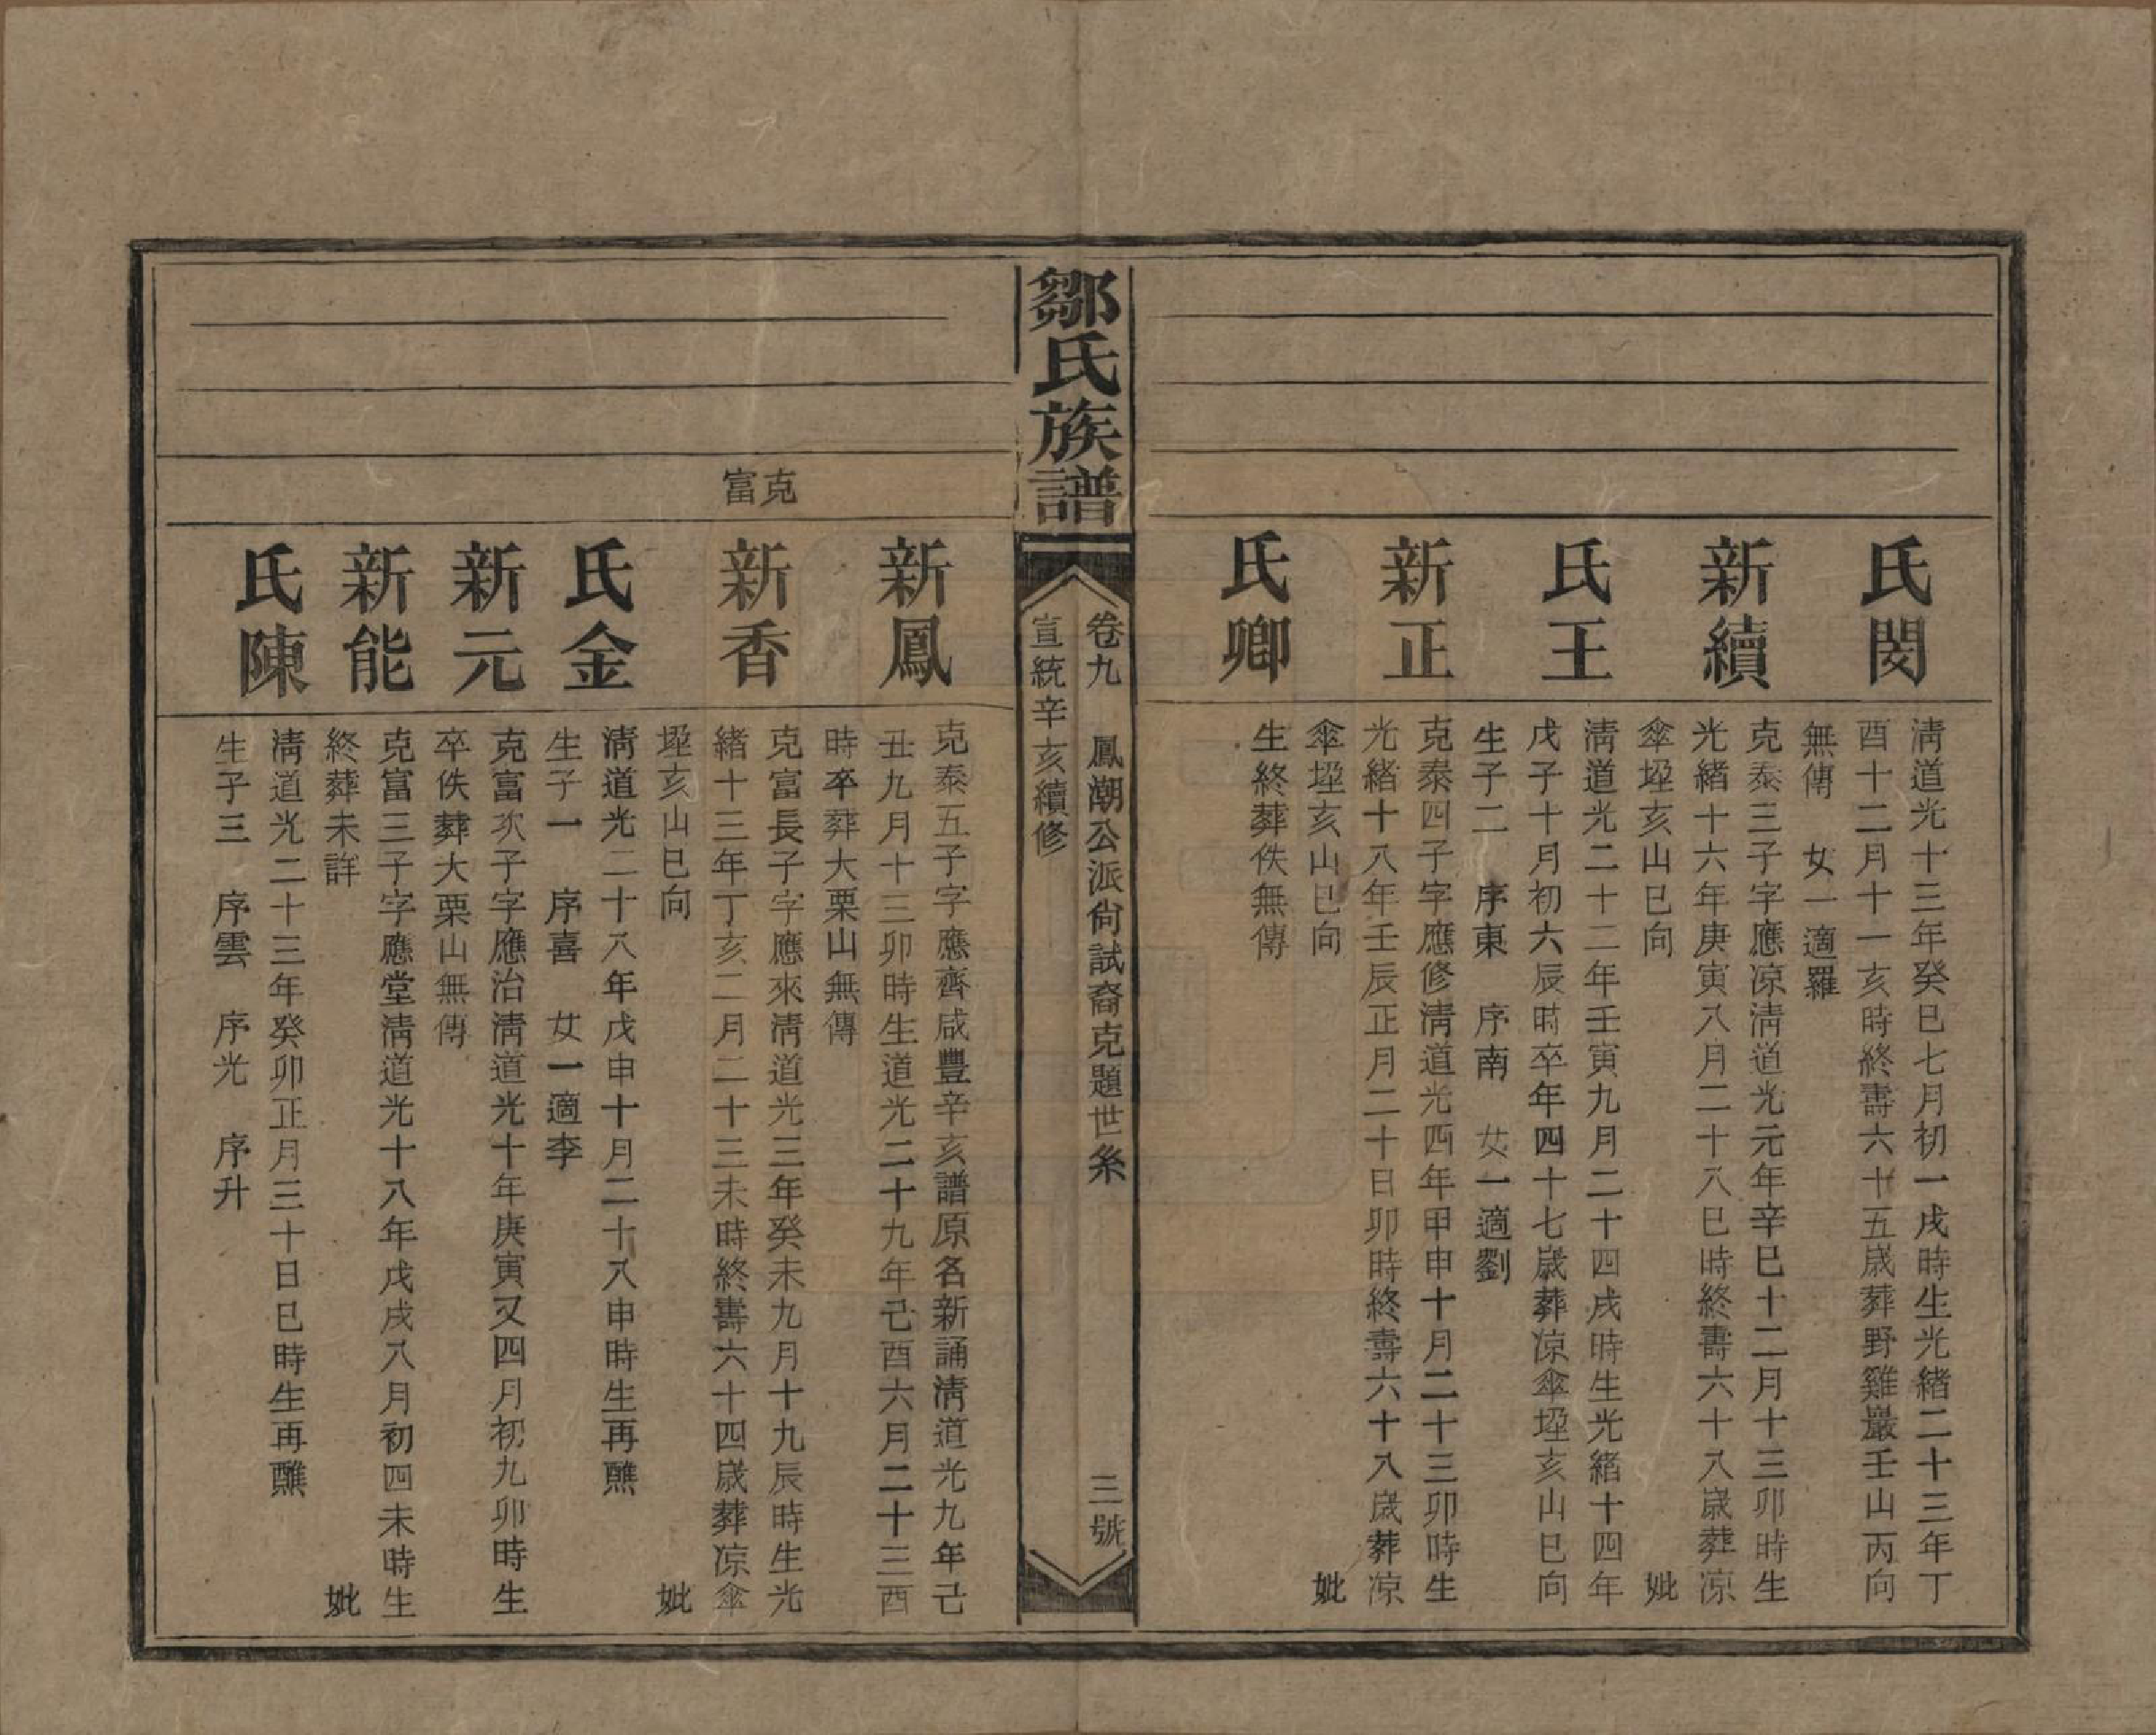 氏閔
清道光十三年癸巳七月初一戌時生光緒二十三年丁
酉十二月十一亥時終壽六十五歲葬野雞巖壬山丙向
無傳　女一適羅
新續
克泰三子字應凉清道光元年辛巳十二月十三卯時生
光緒十六年庚寅八月二十八巳時終壽六十八歲葬凉
傘堙亥山巳向　妣
氏王
清道光二十二年壬寅九月二十四戌時生光緒十四年
戊子十月初六辰時卒年四十七歲葬凉傘堙亥山巳向
生子二　序東　序南　女一適劉
新正
克泰四子字應修清道光四年甲申十月二十三卯時生
光緒十八年壬辰正月二十日卯時終壽六十八歲葬凉
傘堙亥山巳向　妣
氏卿
生終葬佚無傳
鄒氏族譜
卷九　鳳潮公派尙試裔克題世系　三號
宣統辛亥續修
新鳳
克泰五子字應齊咸豐辛亥譜原名新誦清道光九年己
丑九月十三卯時生道光二十九年己酉六月二十三酉
時卒葬大栗山無傳
克富
新香
克富長子字應來清道光三年癸未九月十九辰時生光
緒十三年丁亥二月二十三未時終壽六十四歲葬凉傘
堙亥山巳向　妣
氏金
清道光二十八年戊申十月二十八申時生再醮
生子一　序喜　女一適李
新元
克富次子字應治清道光十年庚寅又四月初九卯時生
卒佚葬大栗山無傳
新能
克富三子字應堂清道光十八年戊戌八月初四未時生
終葬未詳　妣
氏陳
清道光二十三年癸卯正月三十日巳時生再醮
生子三　序雲　序光　序升